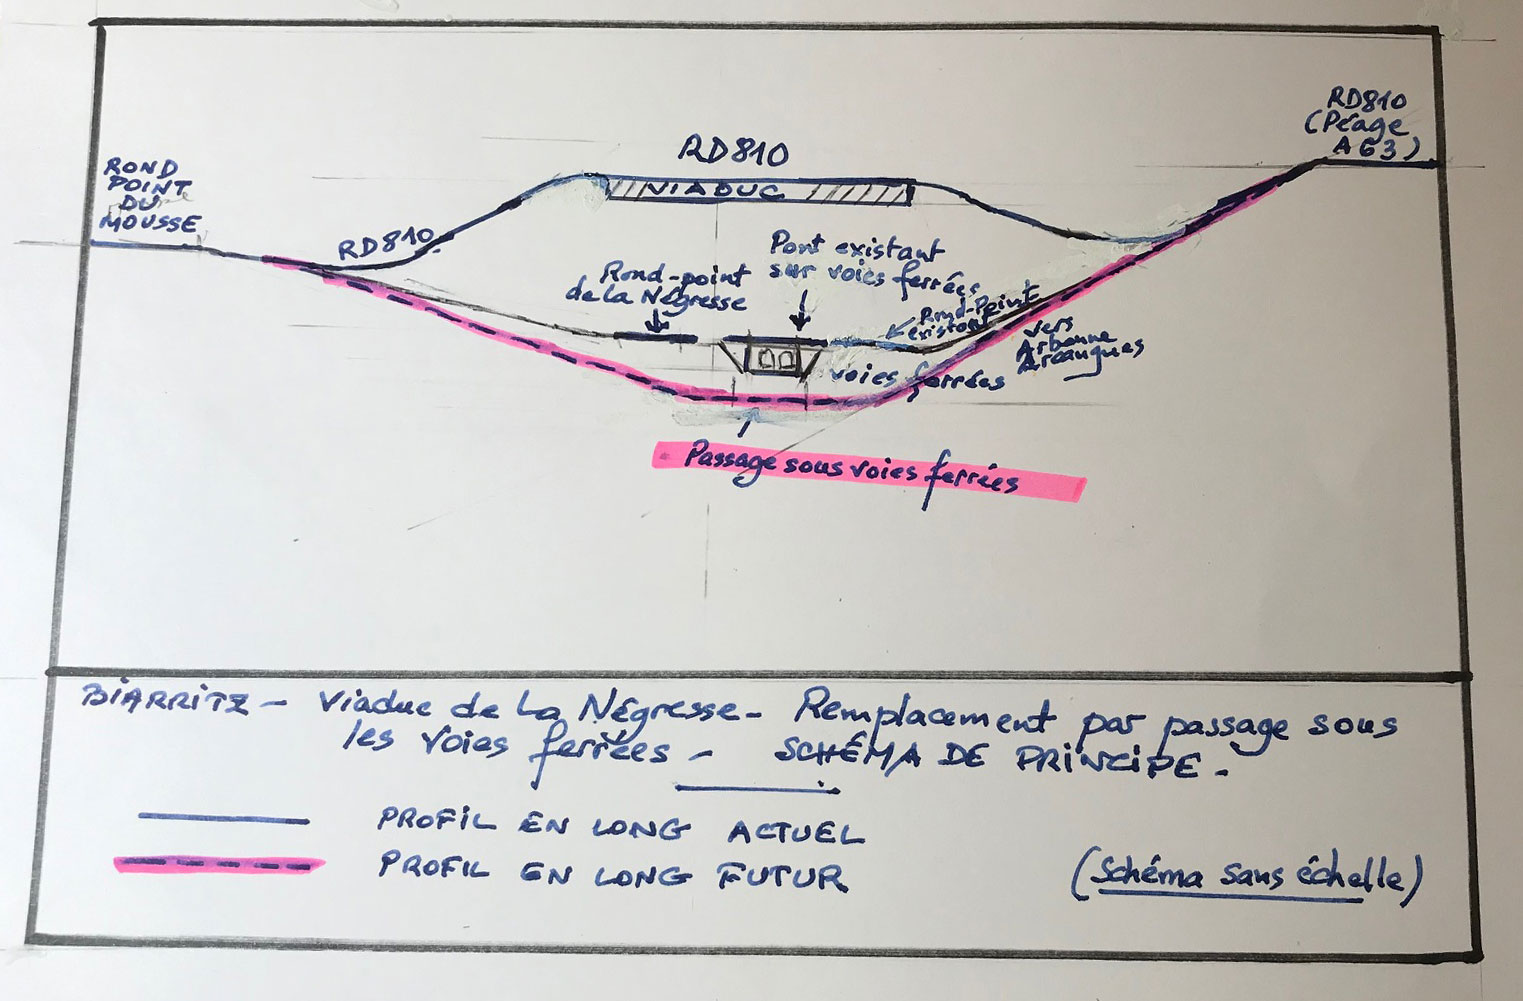 RD810
(Péage
A63)
ROND
POINT
DU
MOUSSE
RD810
VIADUC
RD810
Pont existant
sur voies ferrées
Rond-point
de la Négresse
Rond-Point
existant
vers
Arbonne
Arcangues
voies ferrées
Passage sous voies ferrées
BIARRITZ - Viaduc de La Négresse - Remplacement par passage sous
les voies ferrées - SCHÉMA DE PRINCIPE -
PROFIL EN LONG ACTUEL
PROFIL EN LONG FUTUR
(Schéma sans échelle)